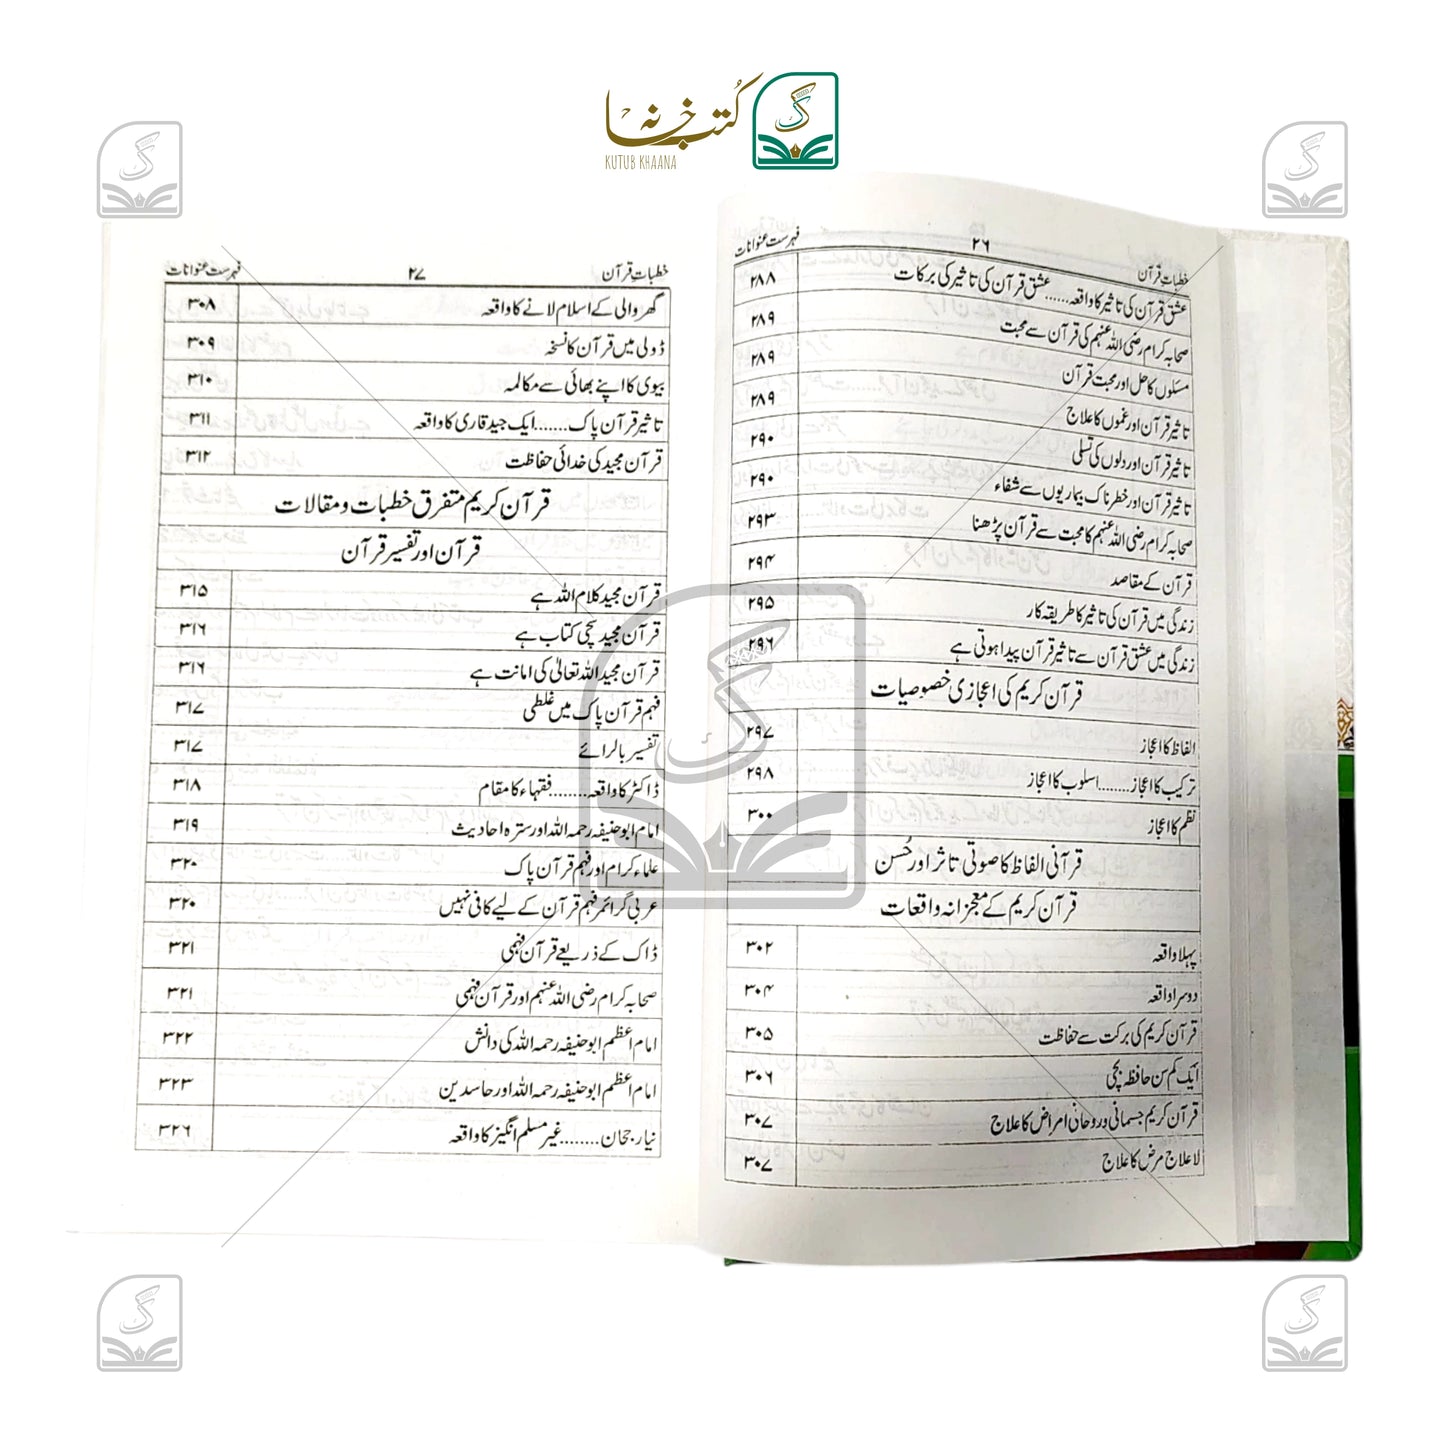 کتب خانہ
KUTUB KHAANA
خطباتِ قرآن ۲۶ فہرست عنوانات
عشق قرآن کی تاثیر کا واقعہ......عشق قرآن کی برکات ۲۸۸
صحابہ کرام رضی اللہ عنہم کی قرآن سے محبت ۲۸۹
مسئلوں کا حل اور محبت قرآن ۲۸۹
تاثیر قرآن اور غموں کا علاج ۲۸۹
تاثیر قرآن اور دلوں کی تسلی ۲۹۰
تاثیر قرآن اور خطرناک بیماریوں سے شفاء ۲۹۰
صحابہ کرام رضی اللہ عنہم کا محبت سے قرآن پڑھنا ۲۹۳
قرآن کے مقاصد ۲۹۴
زندگی میں قرآن کی تاثیر کا طریقہ کار ۲۹۵
زندگی میں عشق قرآن سے تاثیر قرآن پیدا ہوتی ہے ۲۹۶
قرآن کریم کی اعجازی خصوصیات
الفاظ کا اعجاز ۲۹۷
ترکیب کا اعجاز........اسلوب کا اعجاز ۲۹۸
نظم کا اعجاز ۳۰۰
قرآنی الفاظ کا صوتی تاثر اور حُسن
قرآن کریم کے معجزانہ واقعات
پہلا واقعہ ۳۰۲
دوسرا واقعہ ۳۰۴
قرآن کریم کی برکت سے حفاظت ۳۰۵
ایک کم سن حافظہ بچی ۳۰۶
قرآن کریم جسمانی و روحانی امراض کا علاج ۳۰۷
لاعلاج مرض کا علاج ۳۰۷
خطباتِ قرآن ۲۷ فہرست عنوانات
گھر والی کے اسلام لانے کا واقعہ ۳۰۸
ڈولی میں قرآن کا نسخہ ۳۰۹
بیوی کا اپنے بھائی سے مکالمہ ۳۱۰
تاثیر قرآن پاک.......ایک جید قاری کا واقعہ ۳۱۱
قرآن مجید کی خدائی حفاظت ۳۱۲
قرآن کریم متفرق خطبات و مقالات
قرآن اور تفسیر قرآن
قرآن مجید کلام اللہ ہے ۳۱۵
قرآن مجید سچی کتاب ہے ۳۱۶
قرآن مجید اللہ تعالیٰ کی امانت ہے ۳۱۶
فہم قرآن پاک میں غلطی ۳۱۷
تفسیر بالرائے ۳۱۷
ڈاکٹر کا واقعہ........فقہاء کا مقام ۳۱۸
امام ابوحنیفہ رحمہ اللہ اور سترہ احادیث ۳۱۹
علماء کرام اور فہم قرآن پاک ۳۲۰
عربی گرائمر فہم قرآن کے لیے کافی نہیں ۳۲۰
ڈاک کے ذریعے قرآن فہمی ۳۲۱
صحابہ کرام رضی اللہ عنہم اور قرآن فہمی ۳۲۱
امام اعظم ابوحنیفہ رحمہ اللہ کی دانش ۳۲۲
امام اعظم ابوحنیفہ رحمہ اللہ اور حاسدین ۳۲۳
نیا رجحان........غیر مسلم انگیز کا واقعہ ۳۲۶